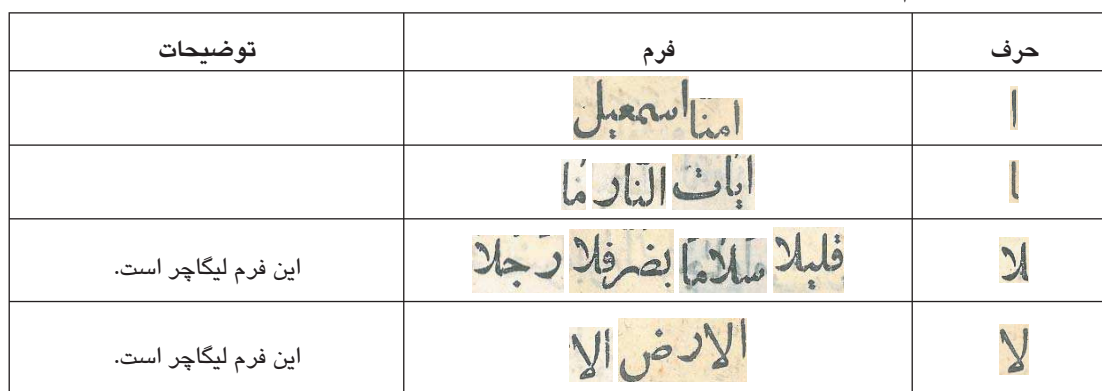 حرف فرم توضیحات
ا امنا اسمعیل
ا ایات النار ما
لا قلیلا سلاما بضر فلا رجلا این فرم لیگاچر است.
لا الارض الا این فرم لیگاچر است.